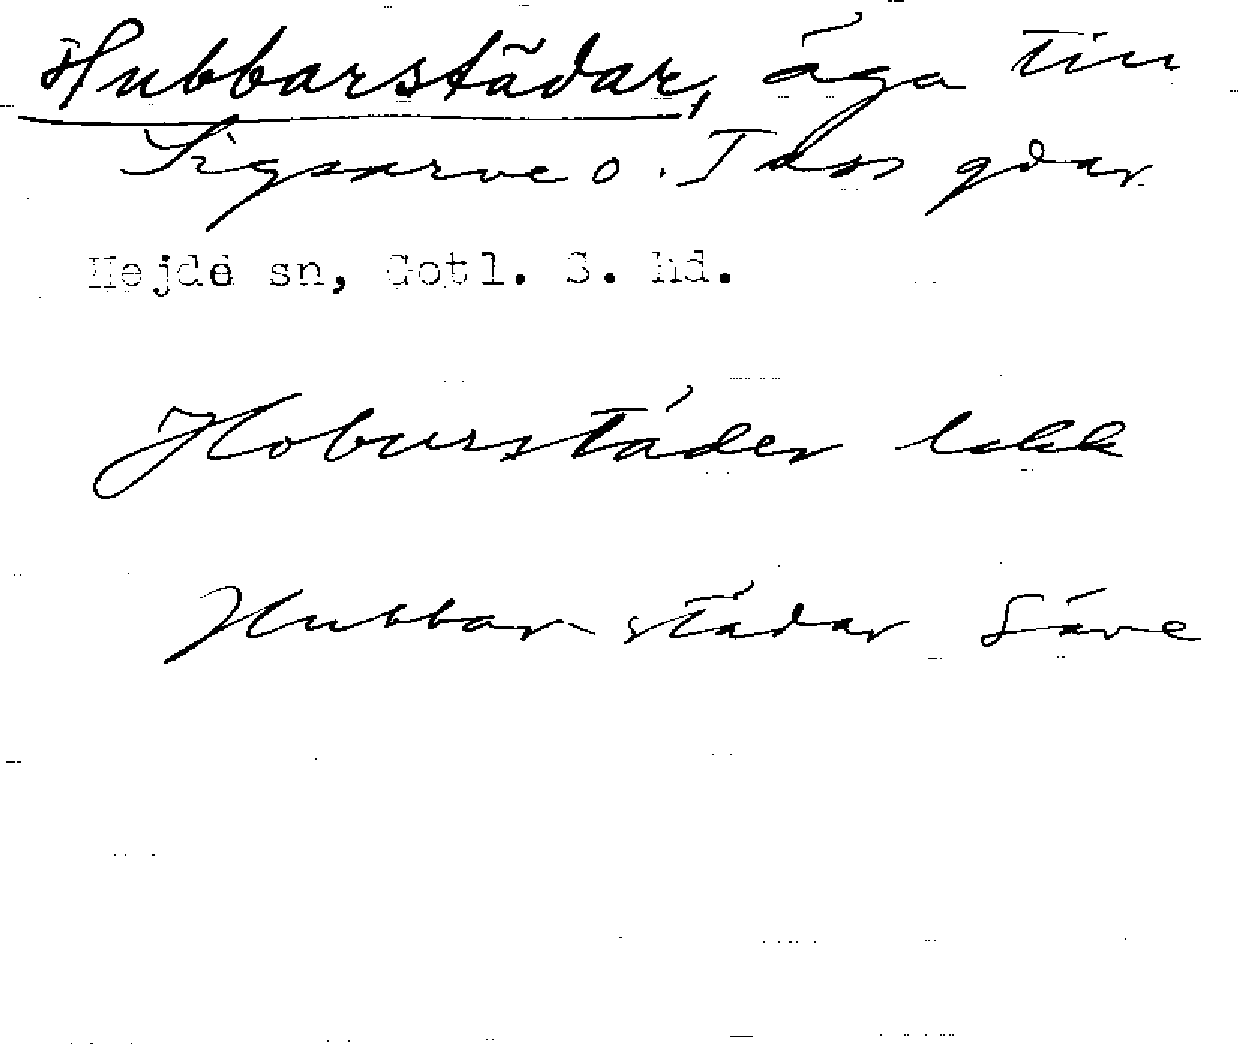 Hubbarstädar, äga till
Sigsarve o. Tass gdar
Hejde sn, Gotl. S. hd.
Hoburstäder
Hubbar städar Säve